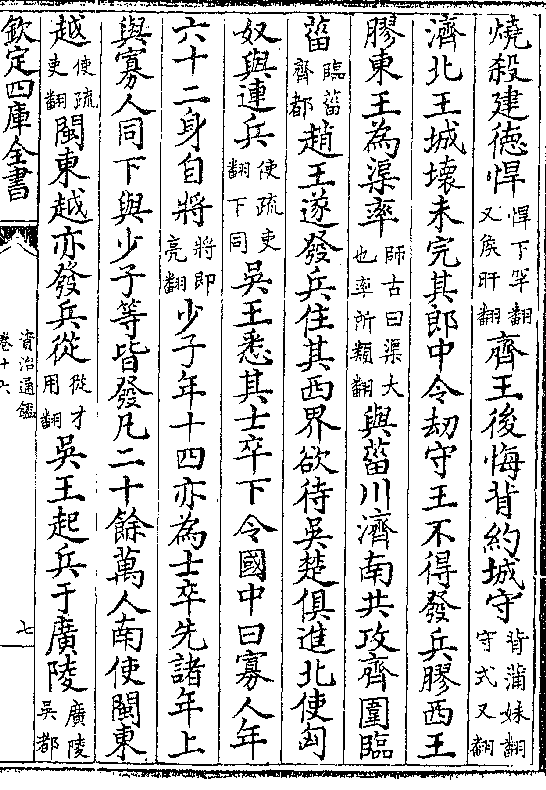 燒殺建德悍悍下罕翻又矦旰翻齊王後悔背約城守背蒲妹翻守式又翻
濟北王城壞未完其郎中令劫守王不得發兵膠西王
膠東王為渠率師古曰渠大也率所類翻與菑川濟南共攻齊圍臨
菑臨菑齊都趙王遂發兵住其西界欲待吳楚俱進北使匈
奴與連兵使疏吏翻下同吳王悉其士卒下令國中曰寡人年
六十二身自將將即亮翻少子年十四亦為士卒先諸年上
與寡人同下與少子等皆發凡二十餘萬人南使閩東
越使疏吏翻閩東越亦發兵從從才用翻吳王起兵于廣陵廣陵吳都
欽定四庫全書
資治通鑑
卷十六
七